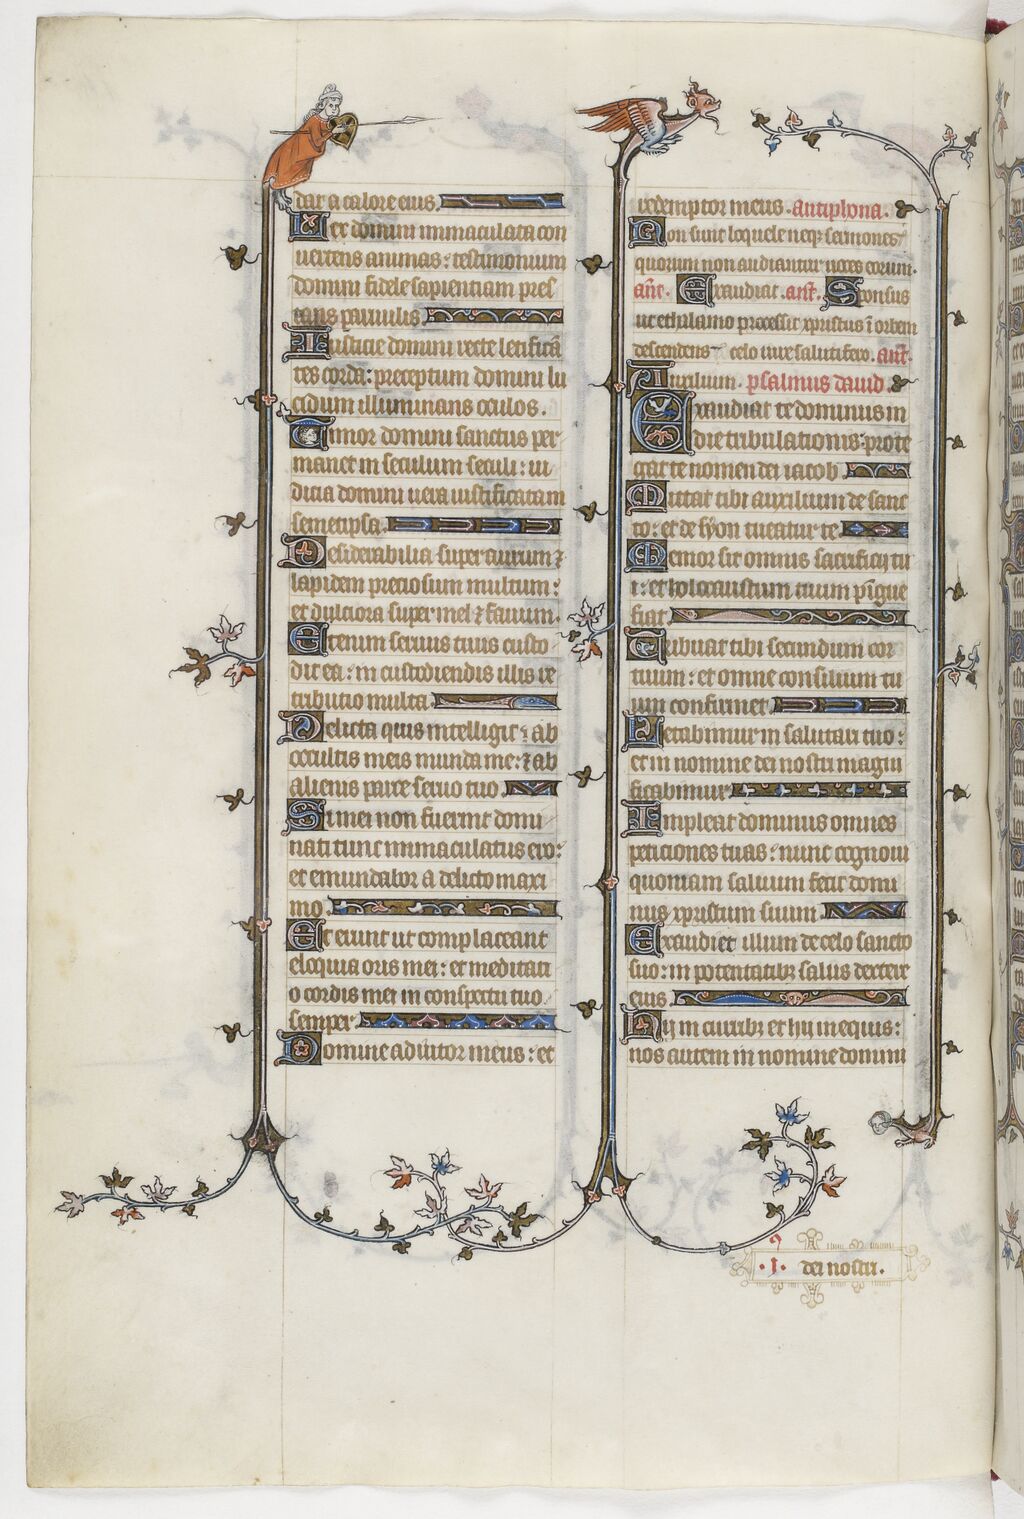 dat a calore eius.
Lex domini immaculata con
uertens animas: testimonium
domini fidele sapientiam pres
tans paruulis.
Iusticie domini recte letificã
tes corda: preceptum domini lu
cidum illuminans oculos.
Timor domini sanctus per
manet in seculum seculi: iu
dicia domini uera iustificata in
semetipsa.
Desiderabilia super aurum ⁊
lapidem preciosum multum:
et dulciora super mel ⁊ fauum.
Etenim seruus tuus custo
dit ea: in custodiendis illis re
tributio multa.
Delicta quis intelligit: ab
occultis meis munda me: ⁊ ab
alienis parce seruo tuo.
Si mei non fuerint domi
nati tunc immaculatus ero:
et emundabor a delicto maxi
mo.
Et erunt ut complaceant
eloquia oris mei: et meditati
o cordis mei in conspectu tuo
semper.
Domine adiutor meus: et
redemptor meus. antiphona.
Non sunt loquele neqꝫ sermones
quorum non audiantur uoces eorum.
añt. Exaudiat. añt. Sponsus
ut e thalamo processit xpristus ĩ orbem
descendens celo iure salutifero. añt.
Auxilium. psalmus dauid.
Exaudiat te dominus in
die tribulationis: prote
gat te nomen dei iacob.
Mittat tibi auxilium de sanc
to: et de syon tueatur te.
Memor sit omnis sacrificij tu
i: et holocaustum tuum pĩgue
fiat.
Tribuat tibi secundum cor
tuum: et omne consilium tu
um confirmet.
Letabimur in salutari tuo:
et in nomine dei nostri magni
ficabimur.
Impleat dominus omnes
peticiones tuas: nunc cognoui
quoniam saluum fecit domi
nus xpristum suum.
Exaudiet illum de celo sancto
suo: in potentatibꝫ salus dextere
eius.
Hij in curribꝫ et hij in equis:
nos autem in nomine domini
.I. dei nostri.